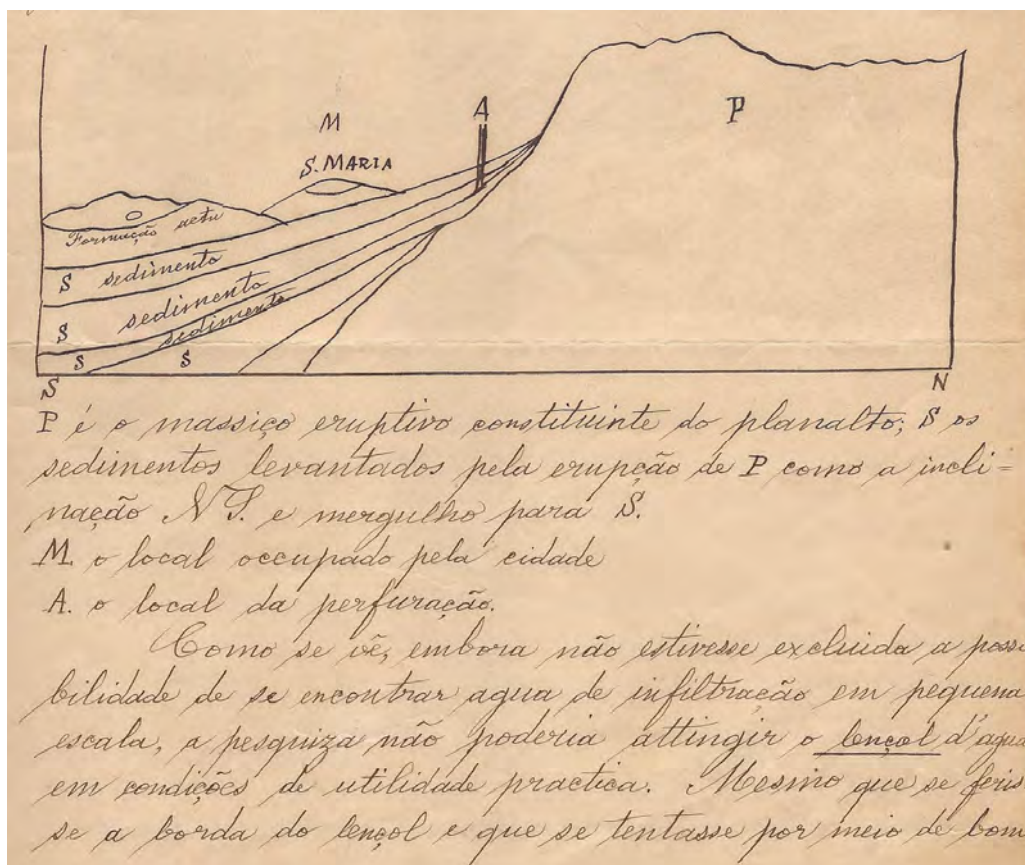 M
A
P
S. MARIA
Formação actu
S sedimento
S sedimento
S sedimento
S
S
N
P é o massiço eruptivo constituinte do planalto; S os
sedimentos levantados pela erupção de P como a incli=
nação N S. e mergulho para S.
M. o local occupado pela cidade
A. o local da perfuração.
Como se vê, embora não estivesse excluida a possi
bilidade de se encontrar agua de infiltração em pequena
escala, a pesquiza não poderia attingir o lençol d'agua
em condições de utilidade practica. Mesmo que se feris
se a borda do lençol e que se tentasse por meio de bom